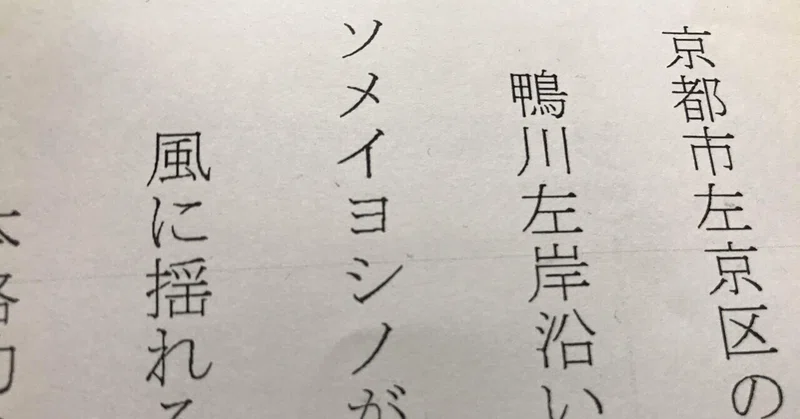 京都市左京区の
鴨川左岸沿い
ソメイヨシノが
風に揺れる
本格